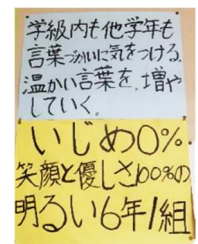 学級内も他学年も
言葉づかいに気をつける。
温かい言葉を、増や
していく。
いじめ0%
笑顔と優しさ100%の
明るい6年1組